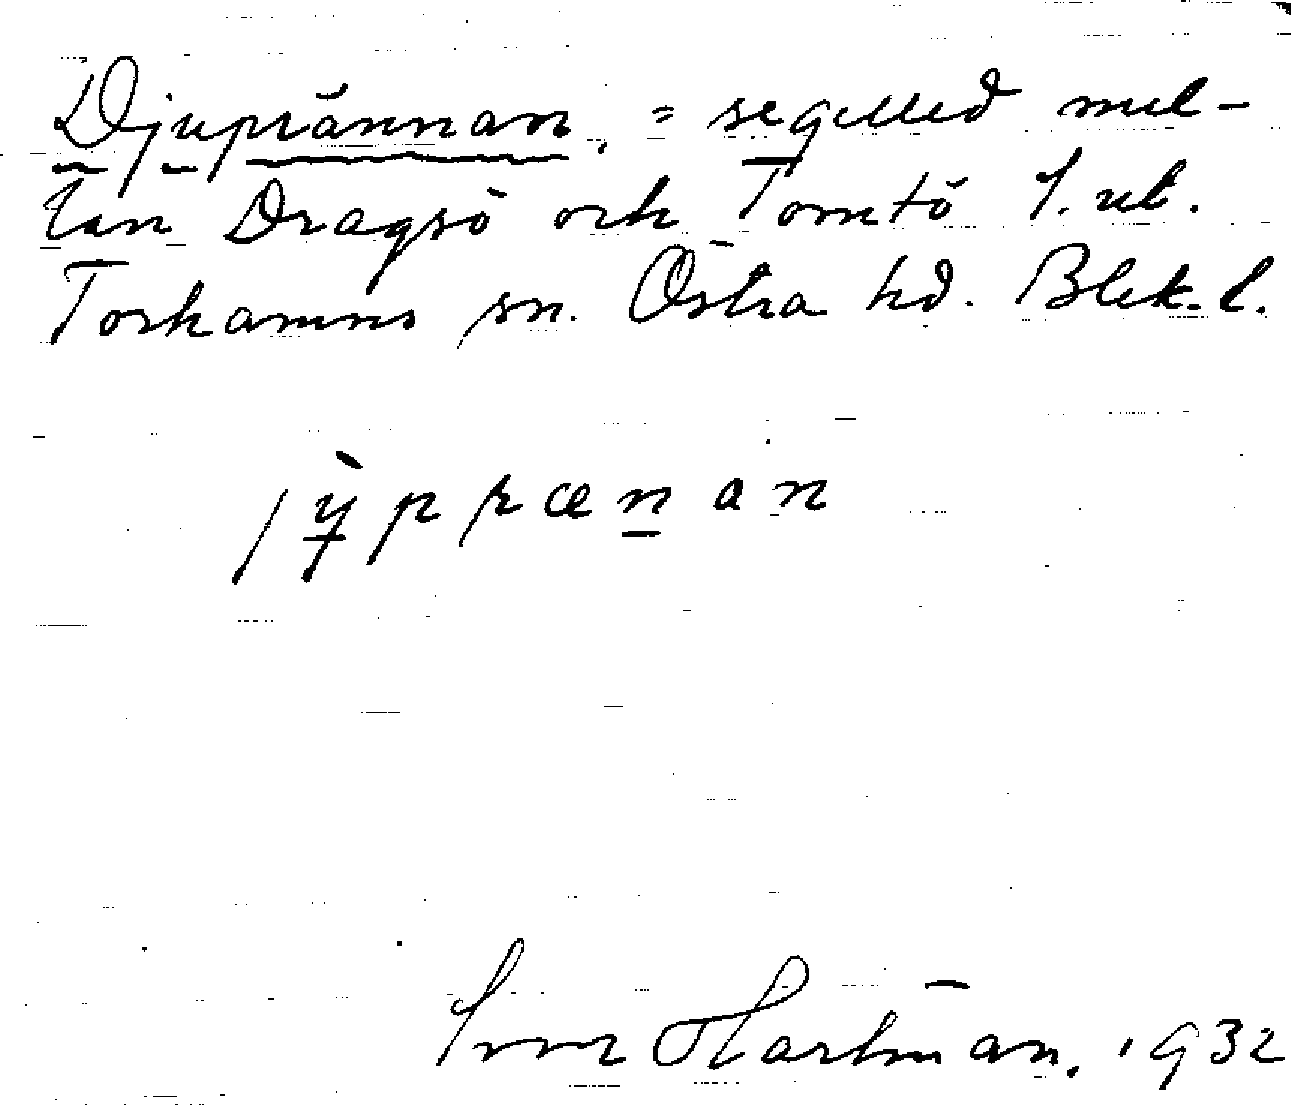 Djuprännan, = segelled mel-
lan Dragsö och Tomtö i. ut.
Torhamns sn. Östra hd. Blek. l.
jỳprænan
Hartman. 1932